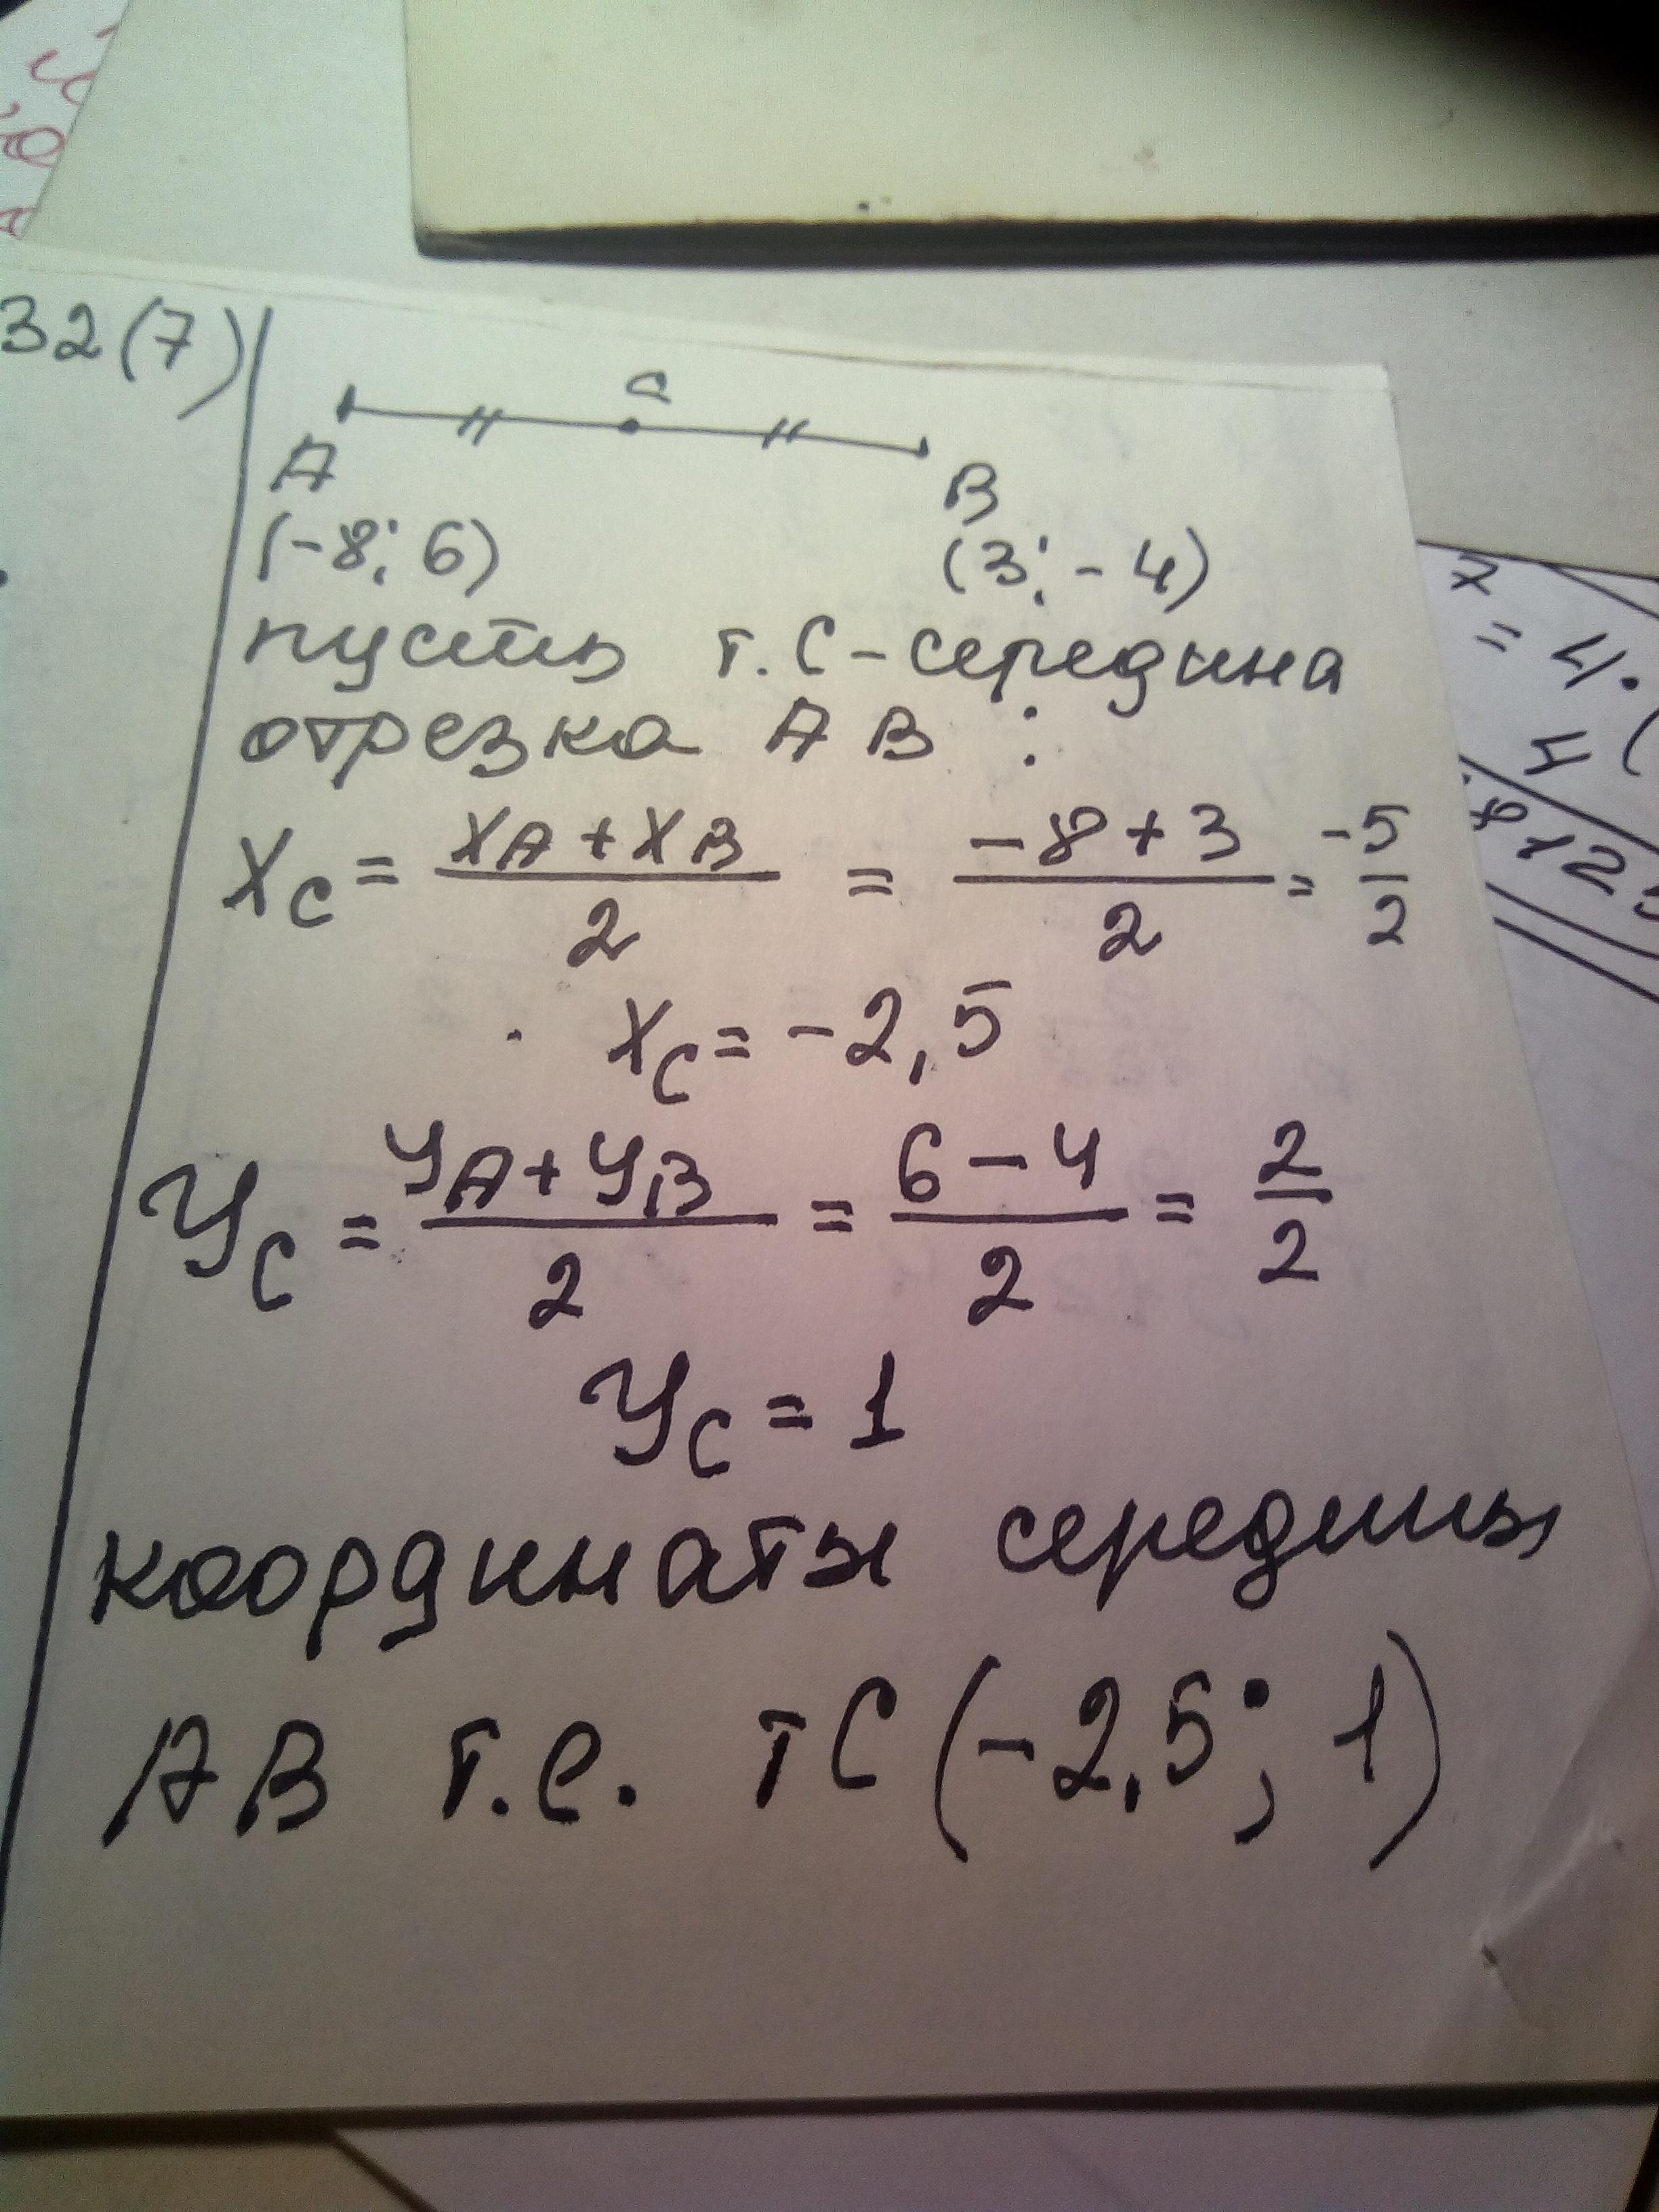 32(7)
C
A B
(-8; 6) (3; -4)
пусть т. С - середина
отрезка AB :
Xc = (XA + XB)/2 = (-8+3)/2 = -5/2
Xc = -2,5
Yc = (YA + YB)/2 = (6-4)/2 = 2/2
Yc = 1
координаты середины
AB т.е. т C (-2,5; 1)
= 4.
125